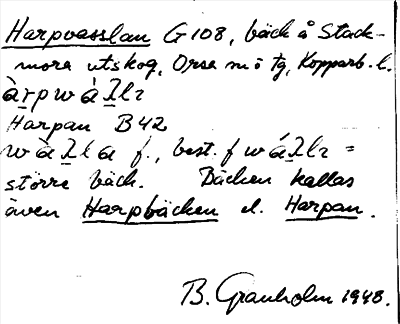 Harpvasslan G 108, bäck å Stack-
mora utskog, Orsa s:n o tg, Kopparb. l.
àrpwàλlı
Harpan B 42
wàλla f., best. f wáλlı =
större bäck. Bäcken kallas
även Harpbäcken el. Harpan.
B. Granholm 1948.